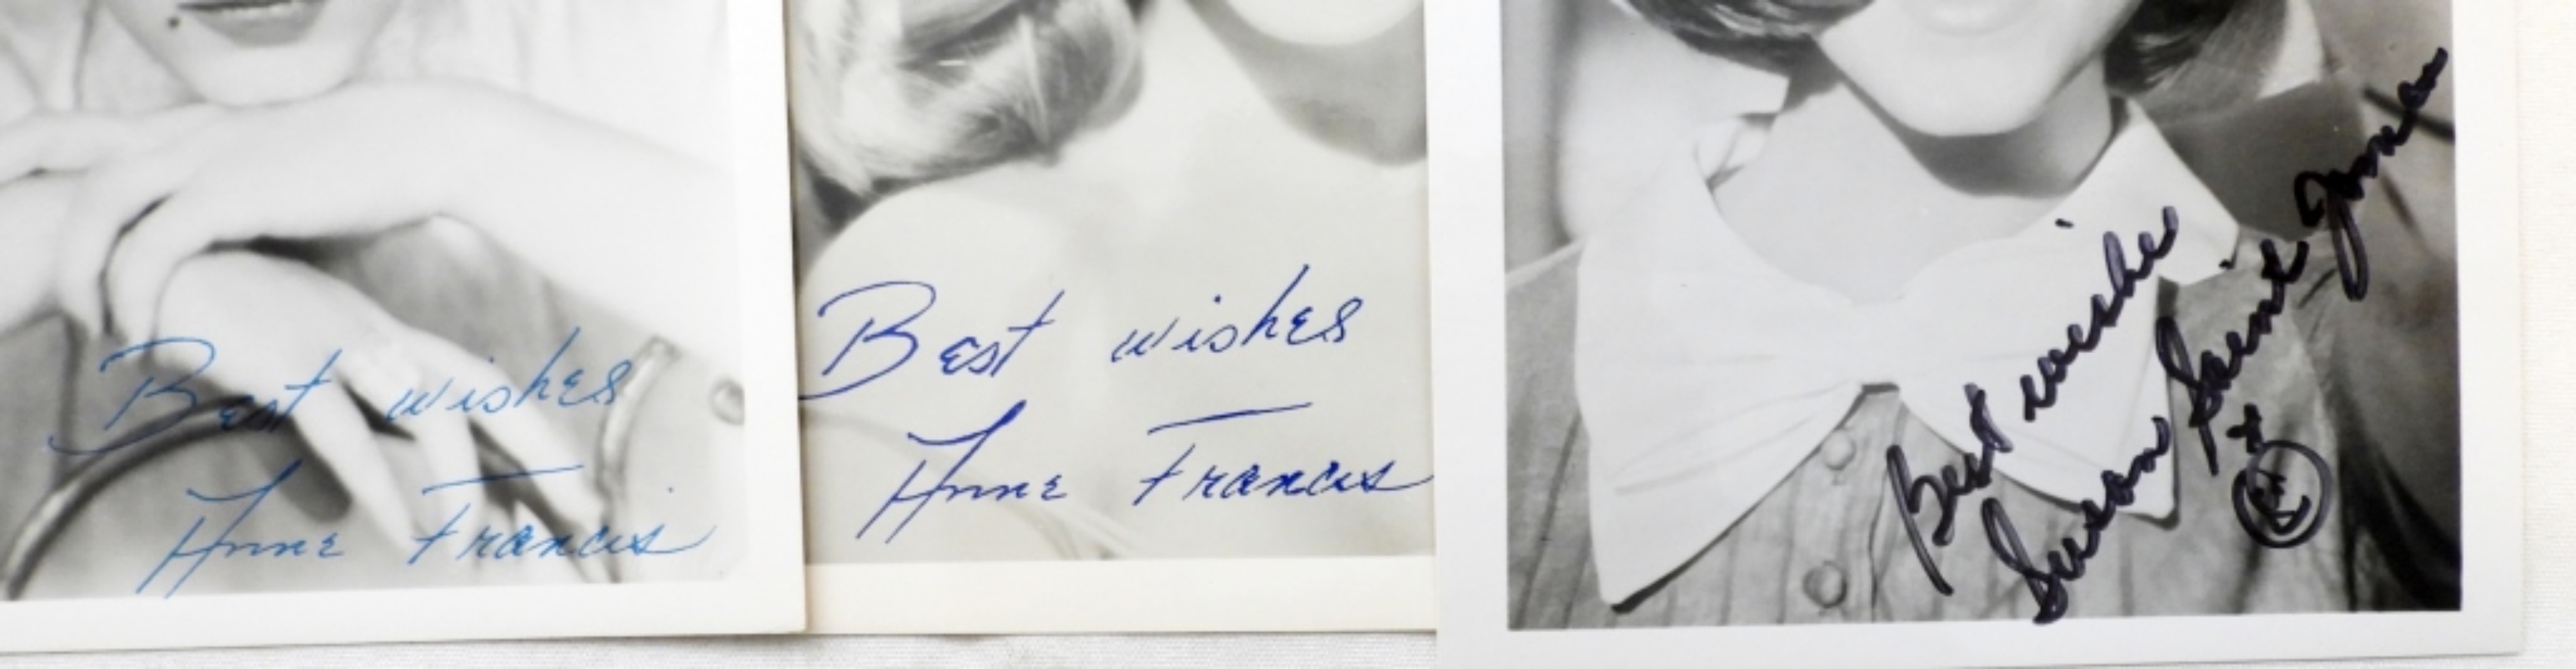 Best wishes
Anne Francis
Best wishes
Anne Francis
Best wishes
Susan Saint James
x